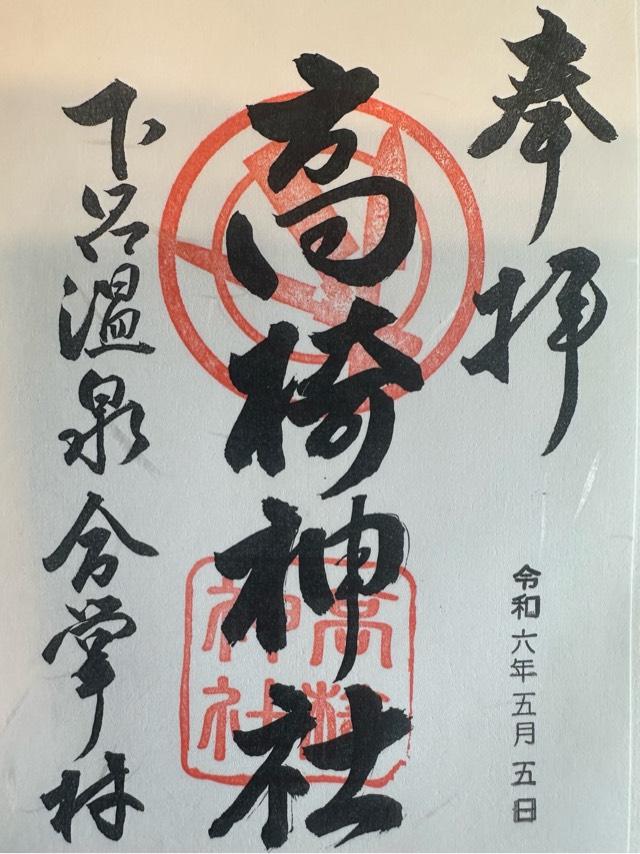 奉拝
令和六年五月五日
高椅神社
高椅神社
下呂温泉合掌村